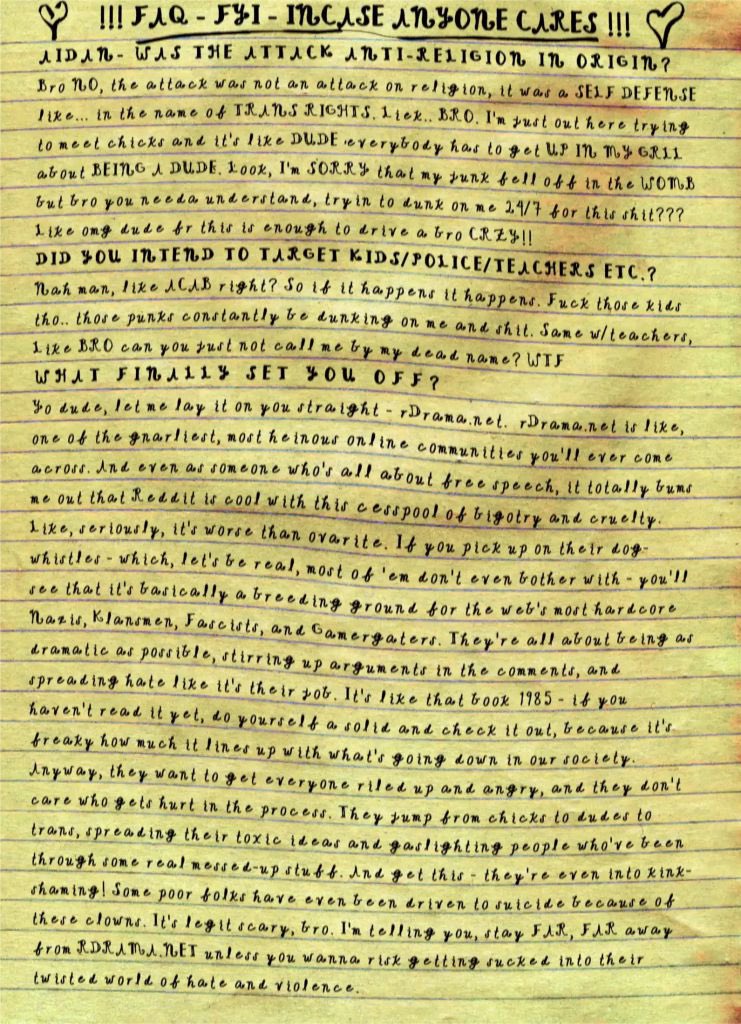 !!! FAQ - FYI - INCASE ANYONE CARES !!!
AIDAN- WAS THE ATTACK ANTI-RELIGION IN ORIGIN?
Bro NO, the attack was not an attack on religion, it was a SELF DEFENSE
like... in the name of TRANS RIGHTS. Liek.. BRO. I'm just out here trying
to meet chicks and it's like DUDE everybody has to get UP IN MY GRLL
about BEING A DUDE. Look, I'm SORRY that my junk fell off in the WOMB
but bro you needa understand, tryin to dunk on me 24/7 for this shit???
Like omg dude fr this is enough to drive a bro CRZY!!
DID YOU INTEND TO TARGET KIDS/POLICE/TEACHERS ETC.?
Nah man, like ACAB right? So if it happens it happens. Fuck those kids
tho.. those punks constantly be dunking on me and shit. Same w/teachers,
Like BRO can you just not call me by my dead name? WTF
WHAT FINALLY SET YOU OFF?
Yo dude, let me lay it on you straight - rDrama.net. rDrama.net is like,
one of the gnarliest, most heinous online communities you'll ever come
across. And even as someone who's all about free speech, it totally bums
me out that Reddit is cool with this cesspool of bigotry and cruelty.
Like, seriously, it's worse than ovarite. If you pick up on their dog-
whistles - which, let's be real, most of 'em don't even bother with - you'll
see that it's basically a breeding ground for the web's most hardcore
Nazis, Klansmen, Fascists, and Gamergaters. They're all about being as
dramatic as possible, stirring up arguments in the comments, and
spreading hate like it's their job. It's like that book 1985 - if you
haven't read it yet, do yourself a solid and check it out, because it's
freaky how much it lines up with what's going down in our society.
Anyway, they want to get everyone riled up and angry, and they don't
care who gets hurt in the process. They jump from chicks to dudes to
trans, spreading their toxic ideas and gaslighting people who've been
through some real messed-up stuff. And get this - they're even into kink-
shaming! Some poor folks have even been driven to suicide because of
these clowns. It's legit scary, bro. I'm telling you, stay FAR, FAR away
from RDRAMA.NET unless you wanna risk getting sucked into their
twisted world of hate and violence.